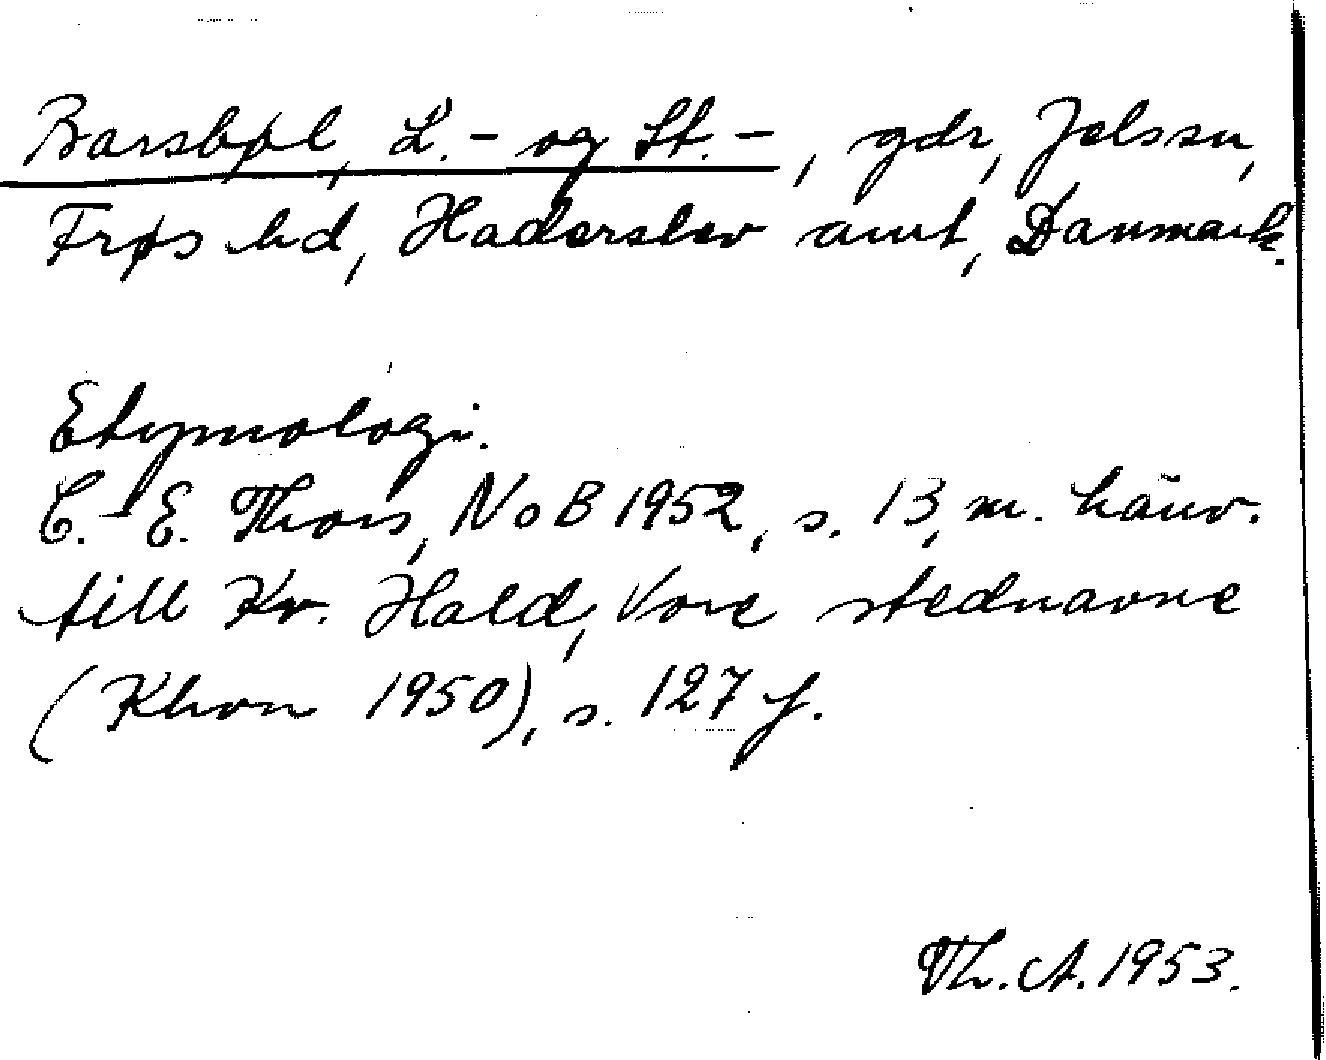 Barsbøl, L.- og St.-, gdr, Jels sn,
Frøs hd, Haderslev amt, Danmark.
Etymologi.
C.-E. Thors, NoB 1952, s. 13, m. hänv.
till Kr. Hald, Vore stednavne
(Khvn 1950), s. 127 f.
Th. A. 1953.